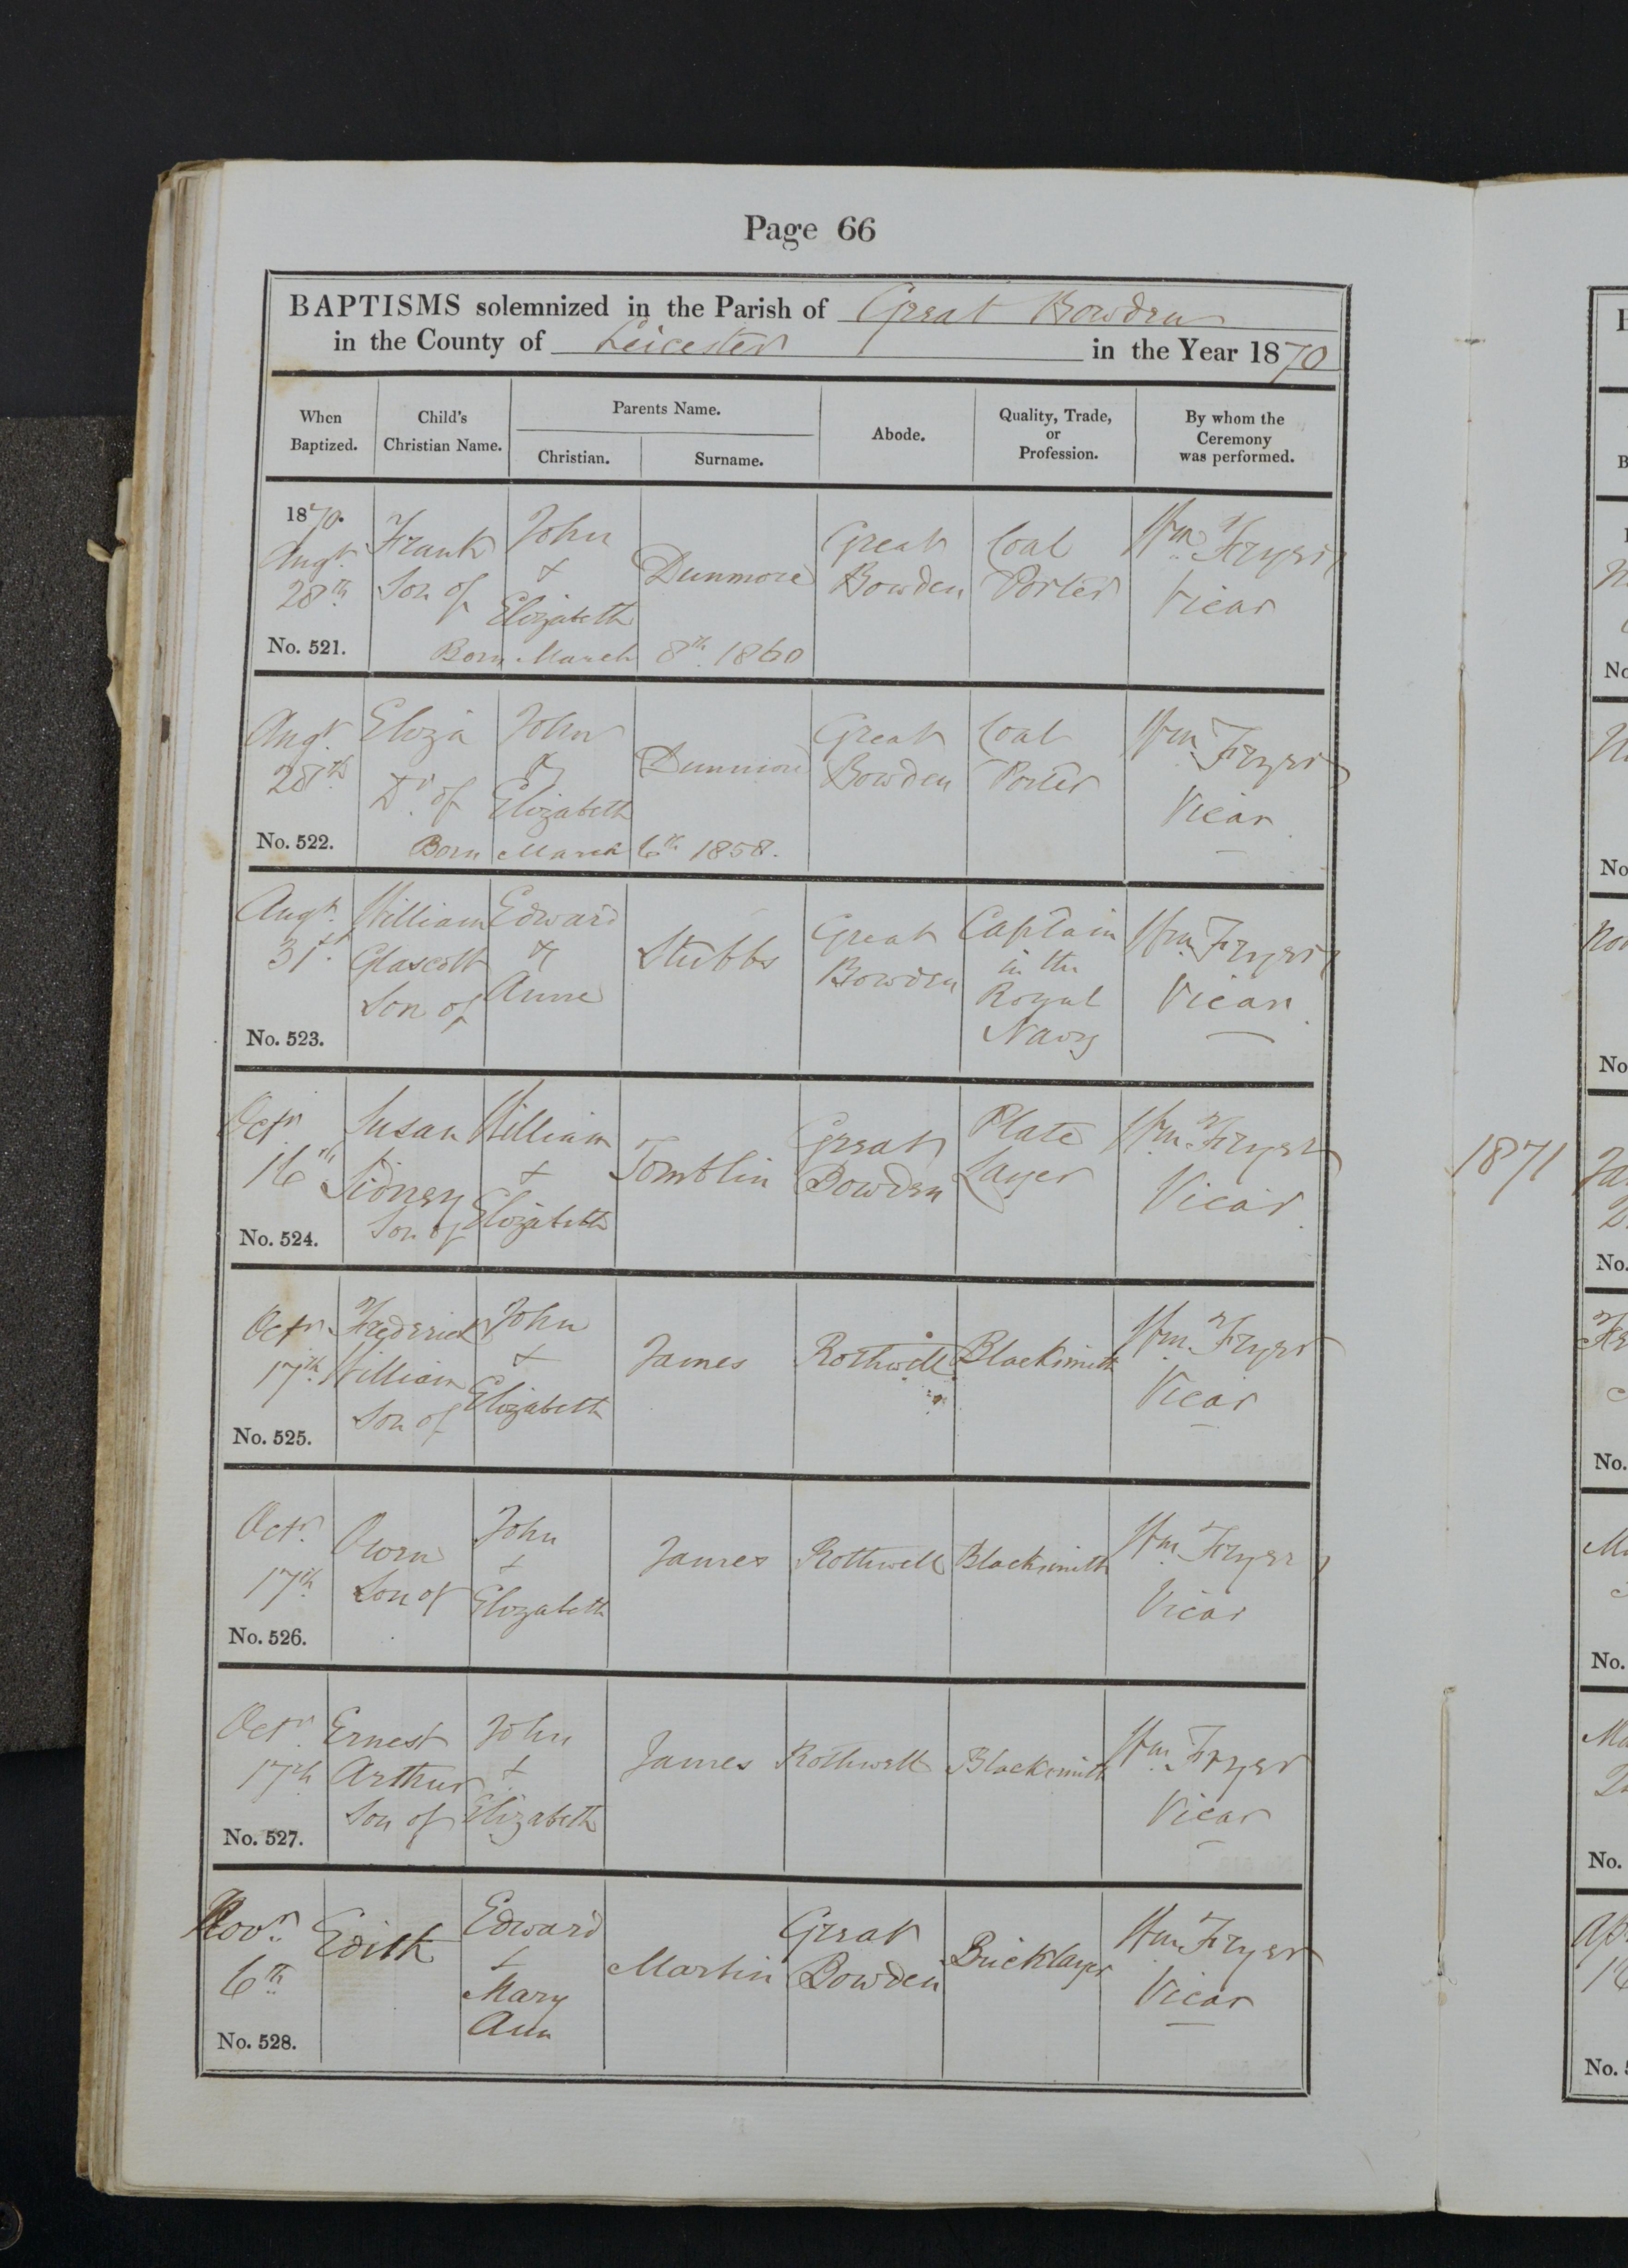 Page 66
BAPTISMS solemnized in the Parish of Great Bowden
in the County of Leicester in the Year 1870
When Baptized.
Child's Christian Name.
Parents Name.
Christian.
Surname.
Abode.
Quality, Trade, or Profession.
By whom the Ceremony was performed.
1870.
Augt.
28th
No. 521.
Frank
Son of
John
+
Elizabeth
Dunmore
Great
Bowden
Coal
Porter
Wm. Fryer
Vicar
Born March 8th. 1860
Augt.
28th
No. 522.
Eliza
Dr. of
John
&
Elizabeth
Dunmore
Great
Bowden
Coal
Porter
Wm. Fryer
Vicar
Born March 6th 1858.
Augt.
31st
No. 523.
William
Glascott
Son of
Edward
&
Anne
Stubbs
Great
Bowden
Captain
in the
Royal
Navy
Wm. Fryer
Vicar
Octr.
16th
No. 524.
Susan
Sidney
Son of
William
+
Elizabeth
Tomblin
Great
Bowden
Plate
Layer
Wm. Fryer
Vicar
Octr.
17th
No. 525.
Frederick
William
Son of
John
+
Elizabeth
James
Rothwell
Blacksmith
Wm. Fryer
Vicar
Octr.
17th
No. 526.
Owen
Son of
John
+
Elizabeth
James
Rothwell
Blacksmith
Wm. Fryer
Vicar
Octr.
17th
No. 527.
Ernest
Arthur
Son of
John
+
Elizabeth
James
Rothwell
Blacksmith
Wm. Fryer
Vicar
Novr.
6th
No. 528.
Edith
Edward
+
Mary
Ann
Martin
Great
Bowden
Bricklayer
Wm. Fryer
Vicar
1871